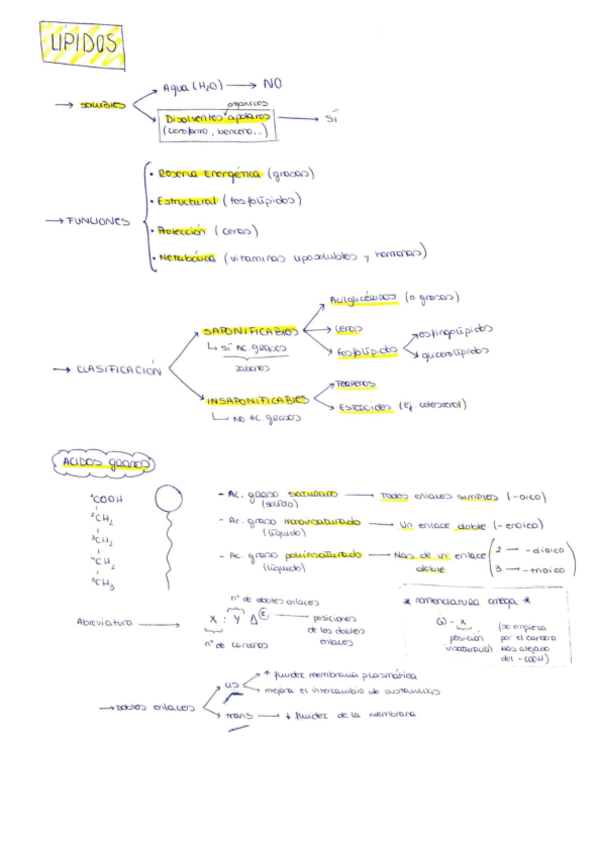 LÍPIDOS
→ SOLUBLES
Agua (H₂O) → NO
orgánicos
Disolventes apolares → SÍ
(cloroformo, benceno...)
→ FUNCIONES
• Reserva Energética (grasas)
• Estructural (fosfolípidos)
• Protección (ceras)
• Metabólica (vitaminas liposolubles y hormonas)
→ CLASIFICACIÓN
SAPONIFICABLES
↳ SÍ AC. grasos
jabones
Acilglicéridos (o grasas)
Ceras
Fosfolípidos
→ esfingolípidos
→ glicerolípidos
INSAPONIFICABLES
↳ NO AC. grasos
Terpenos
Esteroides (Ej. colesterol)
ÁCIDOS grasos
¹COOH
²CH₂
³CH₂
⁴CH₂
⁵CH₃
- Ac. graso saturado → Todos enlaces simples (-oico)
(sólido)
- Ac. graso monoinsaturado → Un enlace doble (-enoico)
(líquido)
- Ac. graso poliinsaturado → Más de un enlace doble
(líquido)
2 → -dioico
3 → -trioico
Abreviatura →
nº de dobles enlaces
X : Y Δ
→ posiciones de los dobles enlaces
nº de carbonos
* nomenclatura omega *
ω - x
posición insaturación
(se empieza por el carbono más alejado del -COOH)
→ Dobles enlaces
cis
→ ↑ fluidez membrana plasmática
→ mejora el intercambio de sustancias
trans → ↓ fluidez de la membrana